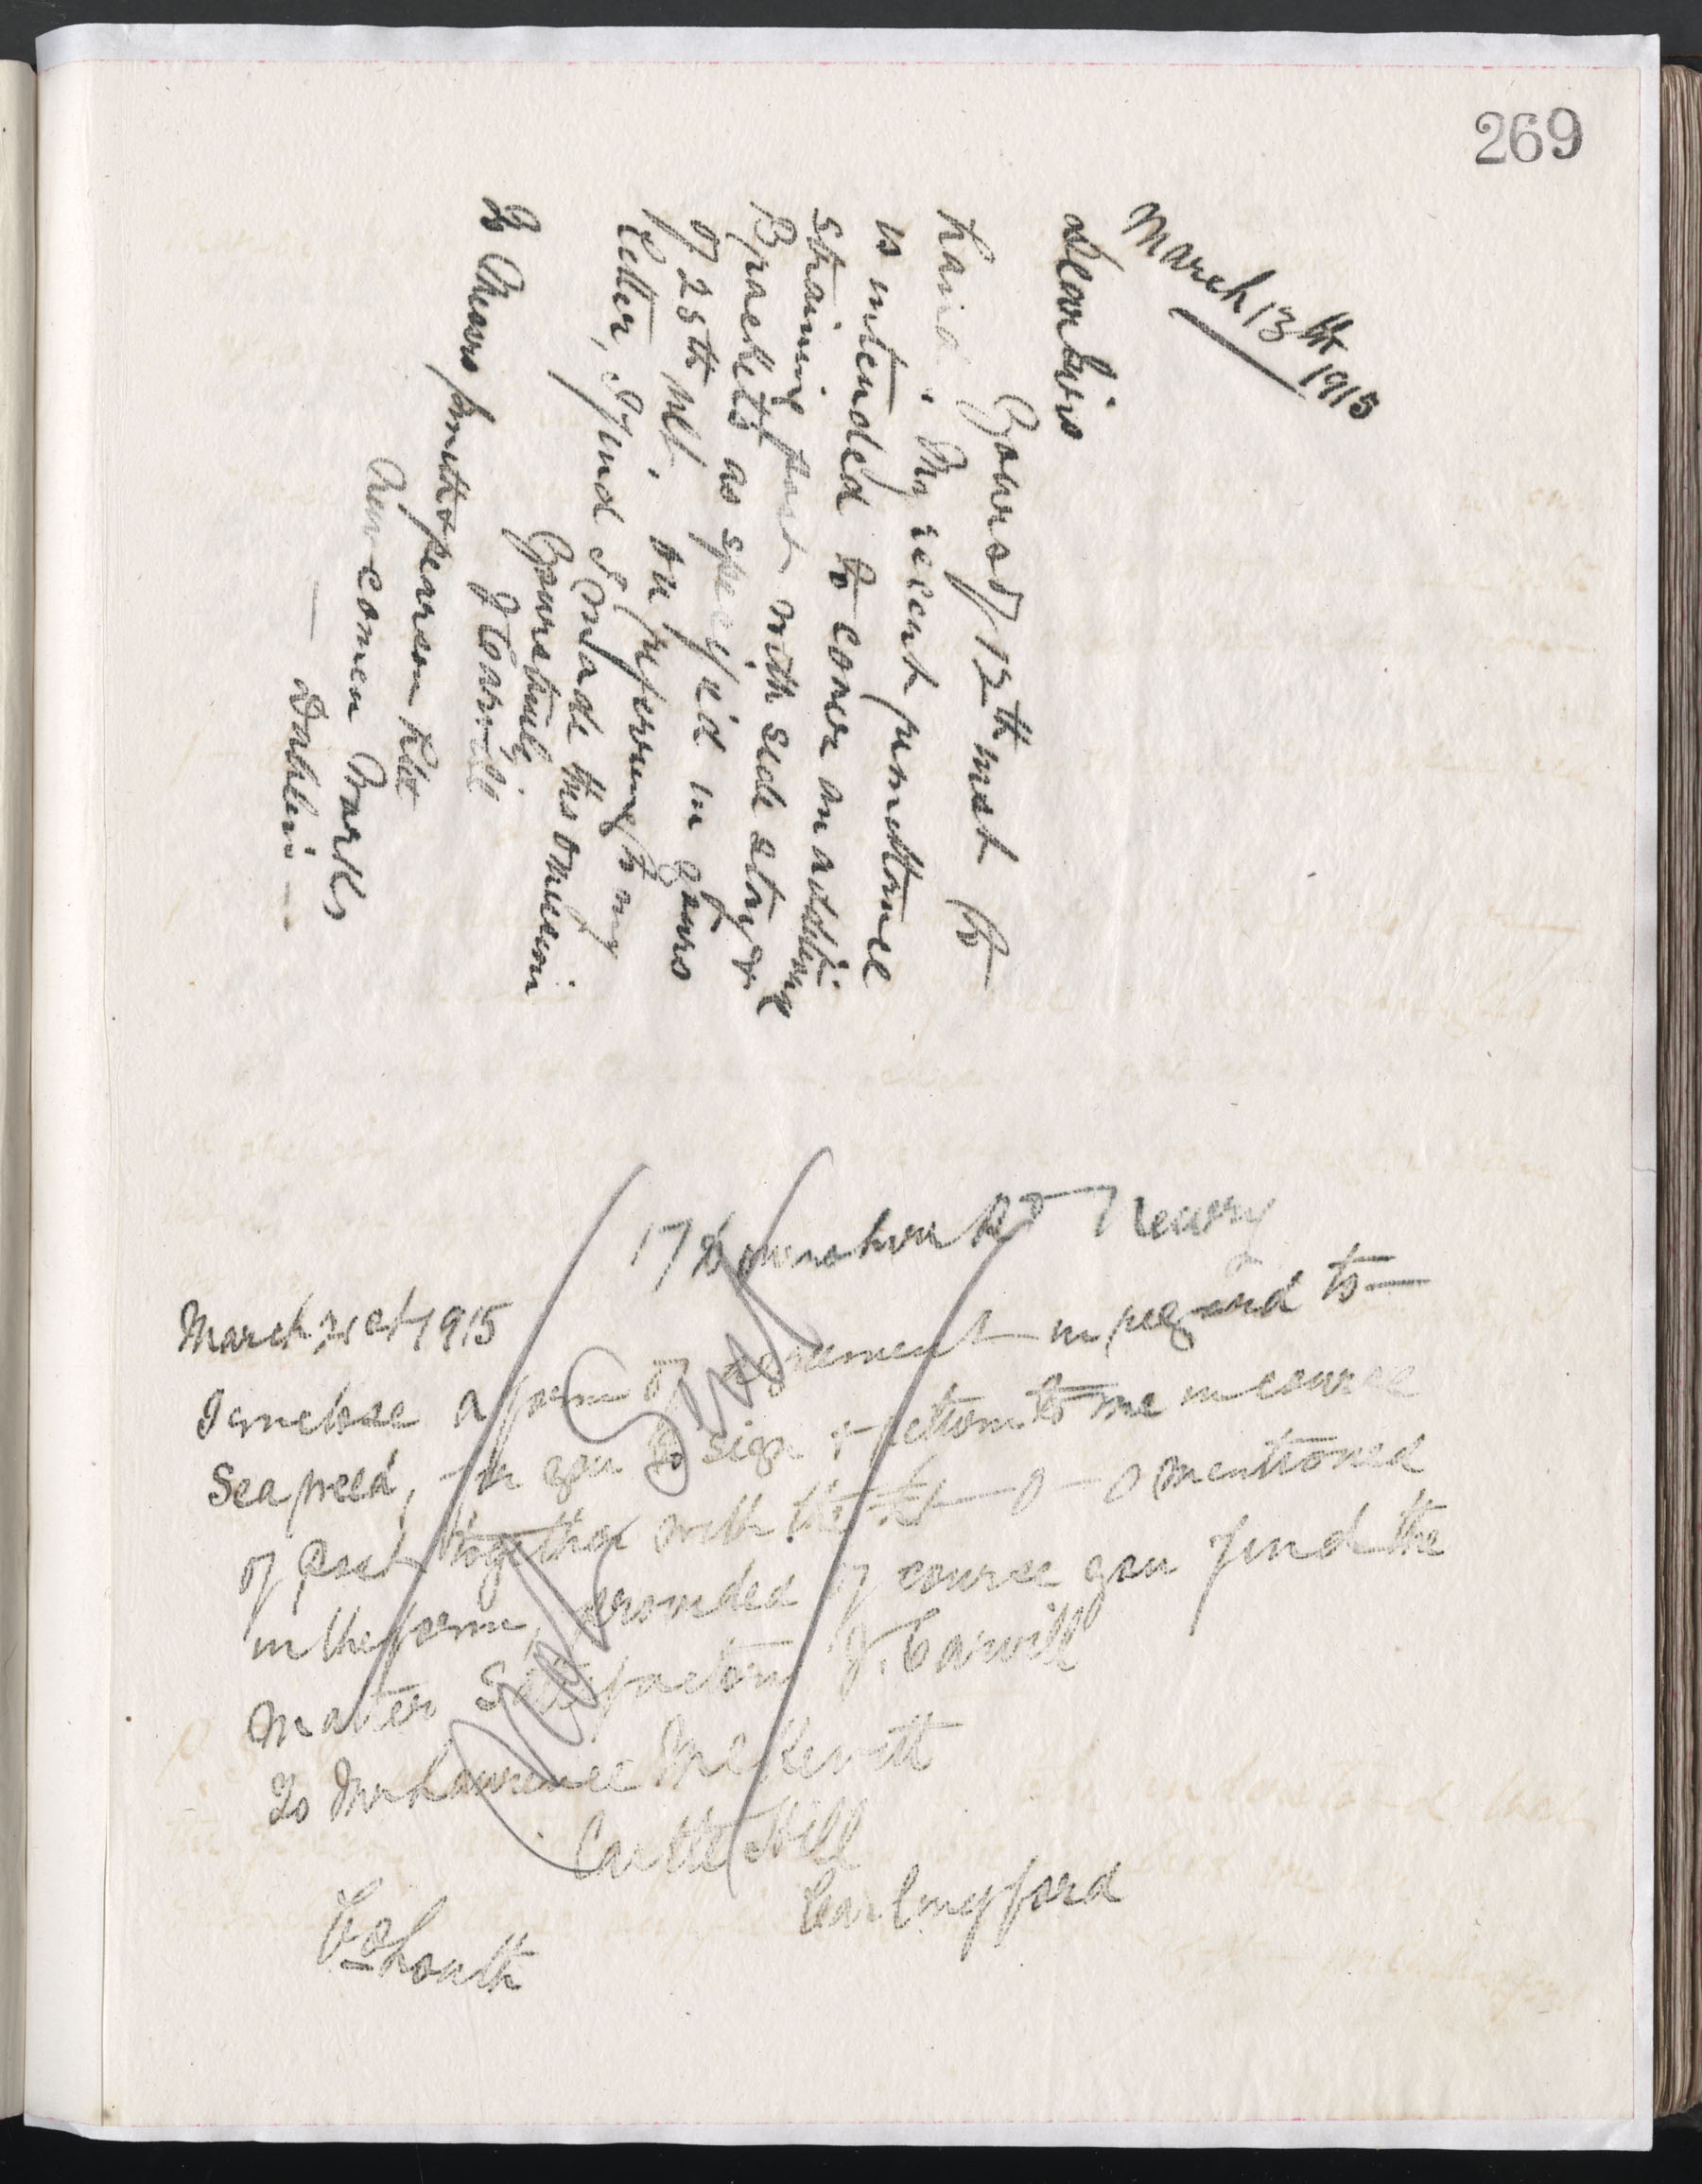 269
March 13th 1915
Dear Sirs
Yours of 12th inst to
hand. My recent remittance
is intended to cover an additional
straining post with side stay &
Brackets as specified in yours
of 25th ult. On referring to my
letter, I find I made this omission
Yours truly
J Carvill
To Messrs Smith & Pearson Ltd
Newcomen Works
Dublin
17 Downshire Rd Newry
March 21st 1915
I enclose a form of agreement in regard to
Sea weed, for you to sign & return to me in course
of Post together with the £1-0-0 mentioned
in the form, provided of course you find the
matter satisfactory J. Carvill
To Mr Laurence McKevitt
Castle Hill
Carlingford
Co Louth